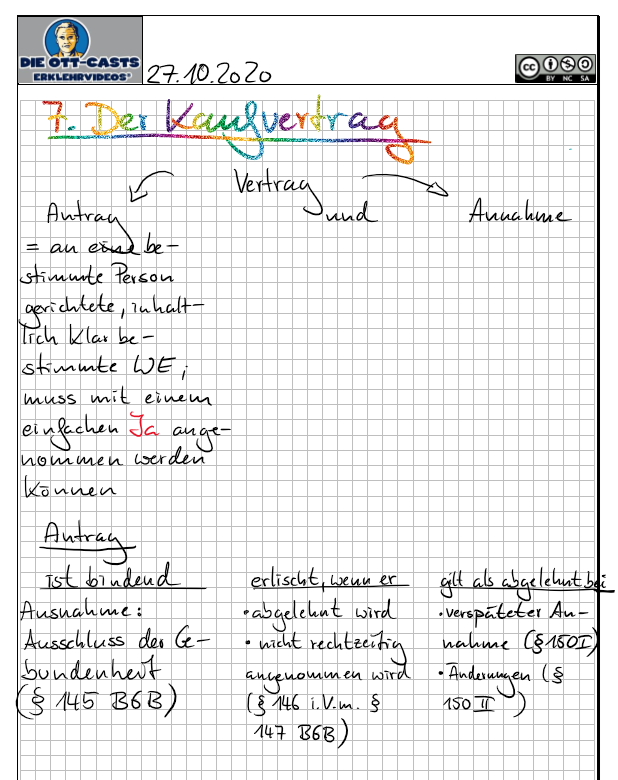 DIE OTT-CASTS
ERKLEHRVIDEOS°
27.10.2020
cc BY NC SA
7. Der Kaufvertrag
Vertrag
Antrag und Annahme
= an eine be-
stimmte Person
gerichtete, inhalt-
lich klar be-
stimmte WE,
muss mit einem
einfachen Ja ange-
nommen werden
können
Antrag
ist bindend
Ausnahme:
Ausschluss der Ge-
bundenheit
(§ 145 BGB)
erlischt, wenn er
• abgelehnt wird
• nicht rechtzeitig
angenommen wird
(§ 146 i.V.m. §
147 BGB)
gilt als abgelehnt bei
• verspäteter An-
nahme (§150I)
• Änderungen (§
150 II)